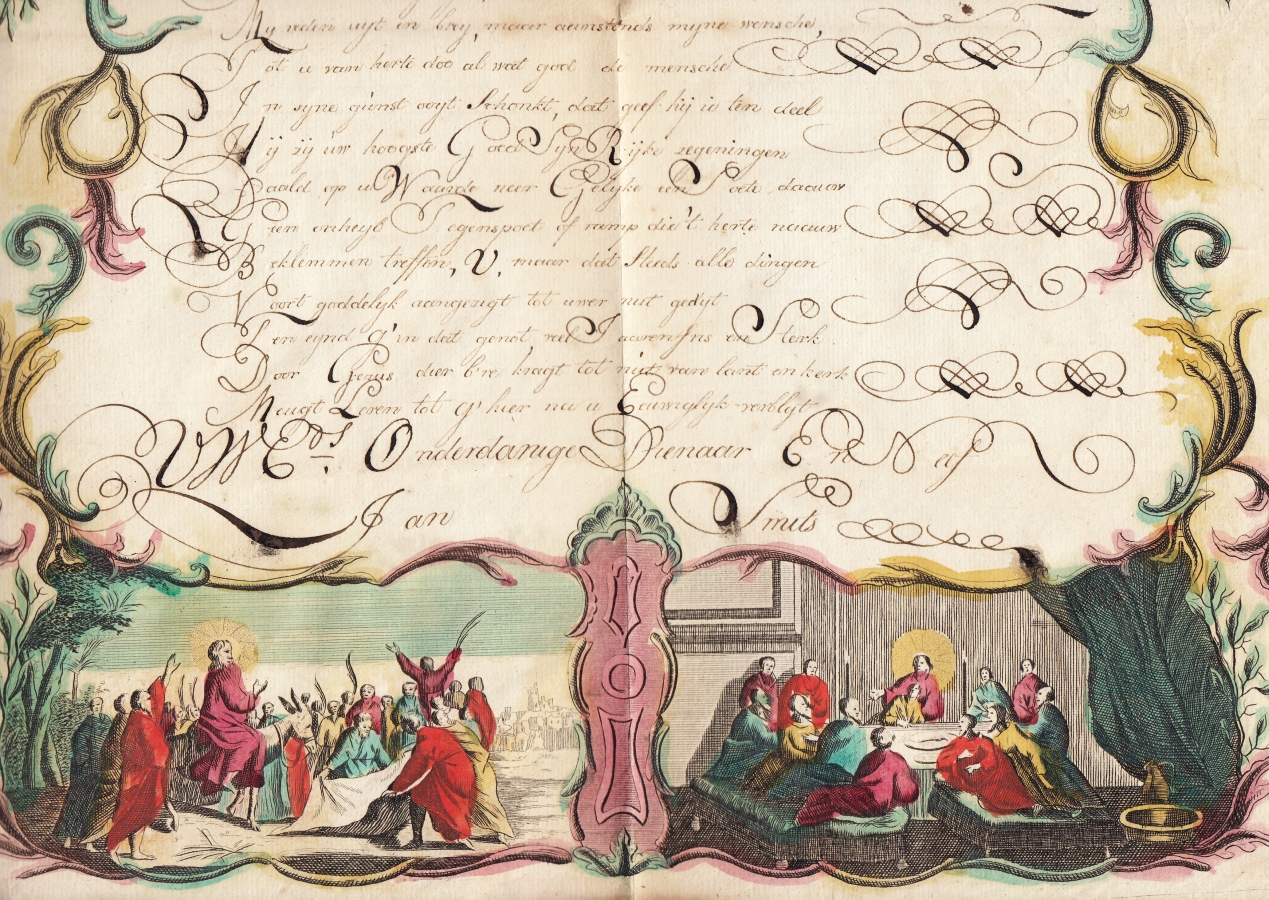 My reden uyt en brey, maar aanstonds myne wensche,
Tot u van herte doe al wat god de mensche
In syne gunst ooyt Schonkt, dat geef hij u ten deel
Hij zij uw hoogste Goed Syn Rijke zegeningen
Daald op u Waarde neer Gelyke een Soete daauw
Geen onheyl Tegenspoet of ramp die't herte naauw
Beklemmen treffen, U, maar dat Steeds alle dingen
Voort goddelyk tot uwer nut gedyt
Ten eynd g'in dat genot, veel Jaaren fris en Sterk
Door Genus dier kragt tot nut van lant en kerk
Meugt Leven tot g' hier na u Eeuwiglyk verblyt
UWEds Onderdanige Dienaar En Neef
Jan Smits